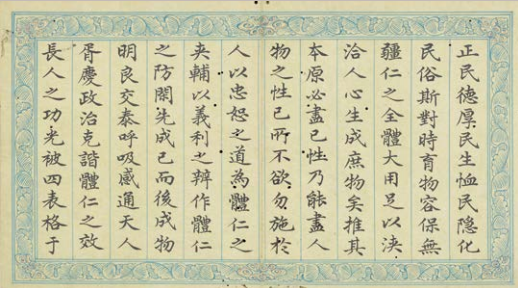 正民德厚民生恤民隱化
民俗斯對時育物容保無
疆仁之全體大用足以浹
洽人心生成庶物矣推其
本原必盡己性乃能盡人
物之性己所不欲勿施於
人以忠恕之道為體仁之
夾輔以義利之辨作體仁
之防閑先成己而後成物
明良交泰呼吸感通天人
胥慶政治克諧體仁之效
長人之功光被四表格于